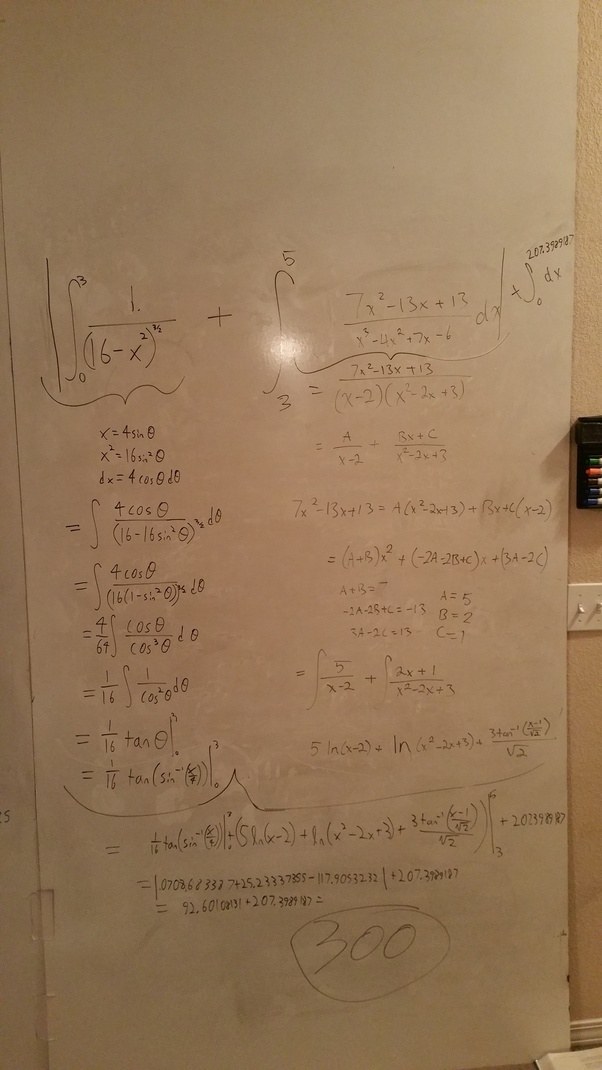 |∫₀³ 1/(16-x²)^{3/2} + ∫₃⁵ (7x²-13x+13)/(x³-4x²+7x-6) dx| + ∫₀^{207.3989187} dx
= (7x²-13x+13)/((x-2)(x²-2x+3))
= A/(x-2) + (Bx+C)/(x²-2x+3)
7x²-13x+13 = A(x²-2x+3) + Bx+C(x-2)
= (A+B)x² + (-2A-2B+C)x + (3A-2C)
A+B=7
-2A-2B+C=-13
3A-2C=13
A=5
B=2
C=1
= ∫ 5/(x-2) + ∫ (2x+1)/(x²-2x+3)
5 ln(x-2) + ln(x²-2x+3) + 3tan⁻¹((x-1)/√2)/√2
x=4sinθ
x²=16sin²θ
dx=4cosθdθ
= ∫ 4cosθ/(16-16sin²θ)^{3/2} dθ
= ∫ 4cosθ/(16(1-sin²θ))^{3/2} dθ
= 4/64 ∫ cosθ/cos³θ dθ
= 1/16 ∫ 1/cos²θ dθ
= 1/16 tanθ|₀³
= 1/16 tan(sin⁻¹(x/4))|₀³
= 1/16 tan(sin⁻¹(x/4))|₀³ + (5ln(x-2) + ln(x²-2x+3) + 3tan⁻¹((x-1)/√2)/√2)|₃⁵ + 207.3989187
+ 207.3989187
= 92.60108131+207.3989187=
300